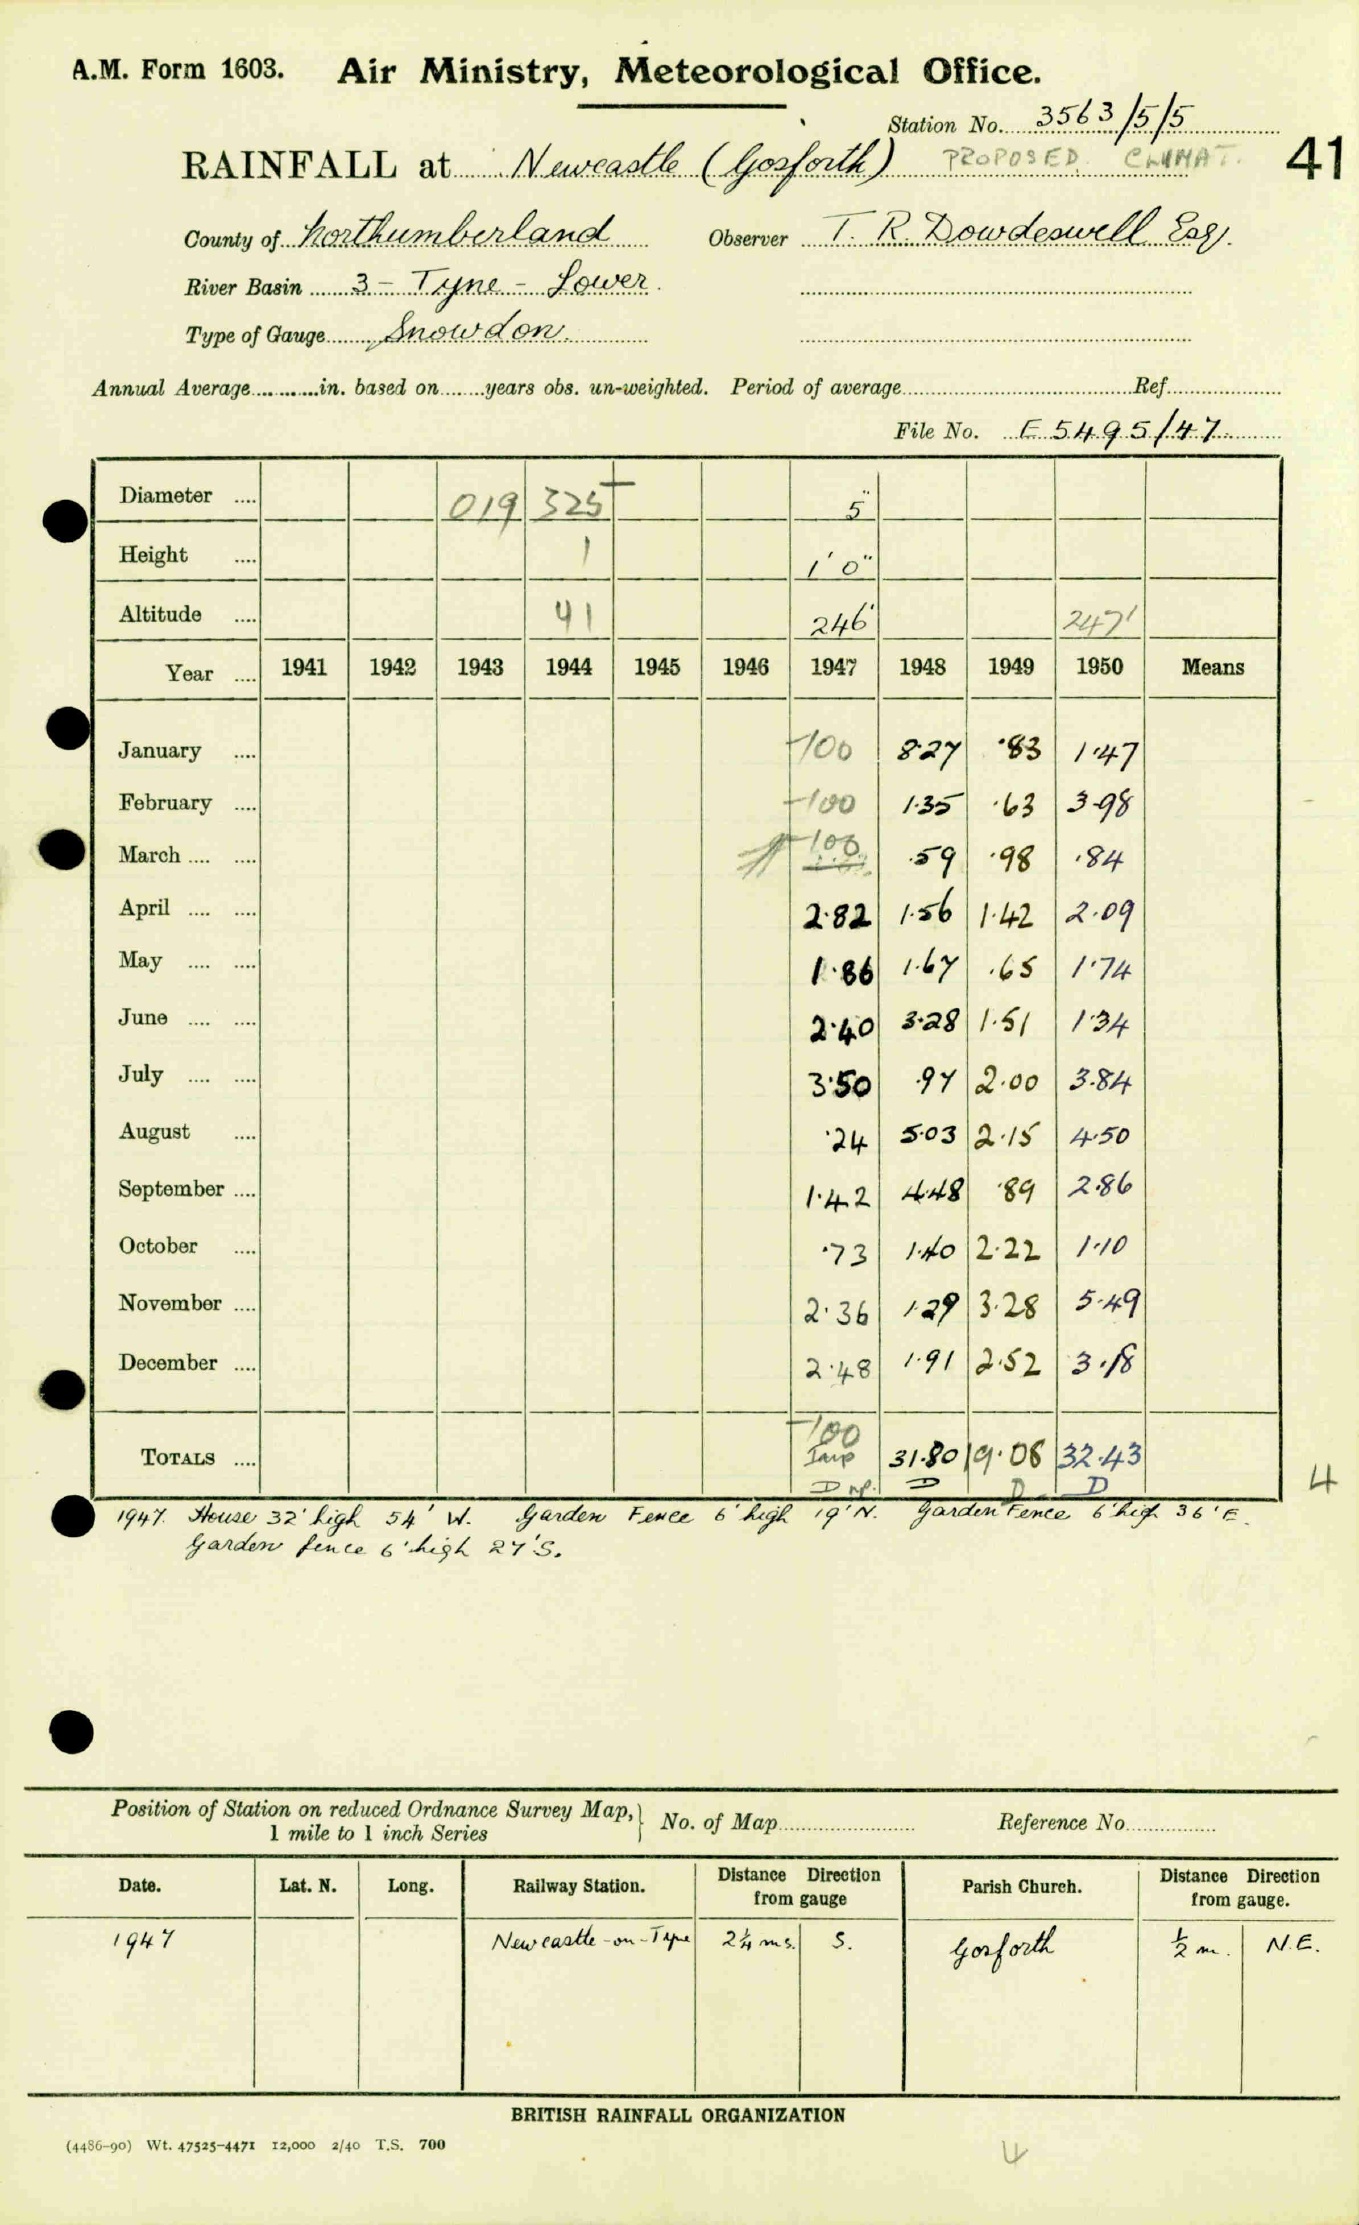 A.M. Form 1603. Air Ministry, Meteorological Office.
Station No. 3563/5/5
RAINFALL at Newcastle (Gosforth) PROPOSED CLIMAT. 41
County of Northumberland Observer T. R. Dowdeswell Esq.
River Basin 3 - Tyne - Lower.
Type of Gauge Snowdon.
Annual Average in. based on years obs. un-weighted. Period of average Ref.
File No. E 5495/47.
Diameter 019 325 5"
Height 1 1' 0"
Altitude 41 246' 247'
Year 1941 1942 1943 1944 1945 1946 1947 1948 1949 1950 Means
January -100 8.27 .83 1.47
February -100 1.35 .63 3.98
March -100 .59 .98 .84
April 2.82 1.56 1.42 2.09
May 1.86 1.67 .65 1.74
June 2.40 3.28 1.51 1.34
July 3.50 .97 2.00 3.84
August .24 5.03 2.15 4.50
September 1.42 4.48 .89 2.86
October .73 1.40 2.22 1.10
November 2.36 1.29 3.28 5.49
December 2.48 1.91 2.52 3.18
-100
TOTALS Imp 31.80 19.08 32.43 4
D D D D
1947. House 32' high 54' W. Garden Fence 6' high 19' N. Garden Fence 6' high 36' E.
Garden fence 6' high 27' S.
Position of Station on reduced Ordnance Survey Map, No. of Map Reference No.
1 mile to 1 inch Series
Date. Lat. N. Long. Railway Station. Distance Direction from gauge Parish Church. Distance Direction from gauge.
1947 Newcastle-on-Tyne 2¼ ms. S. Gosforth ½ m. N.E.
BRITISH RAINFALL ORGANIZATION
(4486-90) Wt. 47525-4471 12,000 2/40 T.S. 700
4